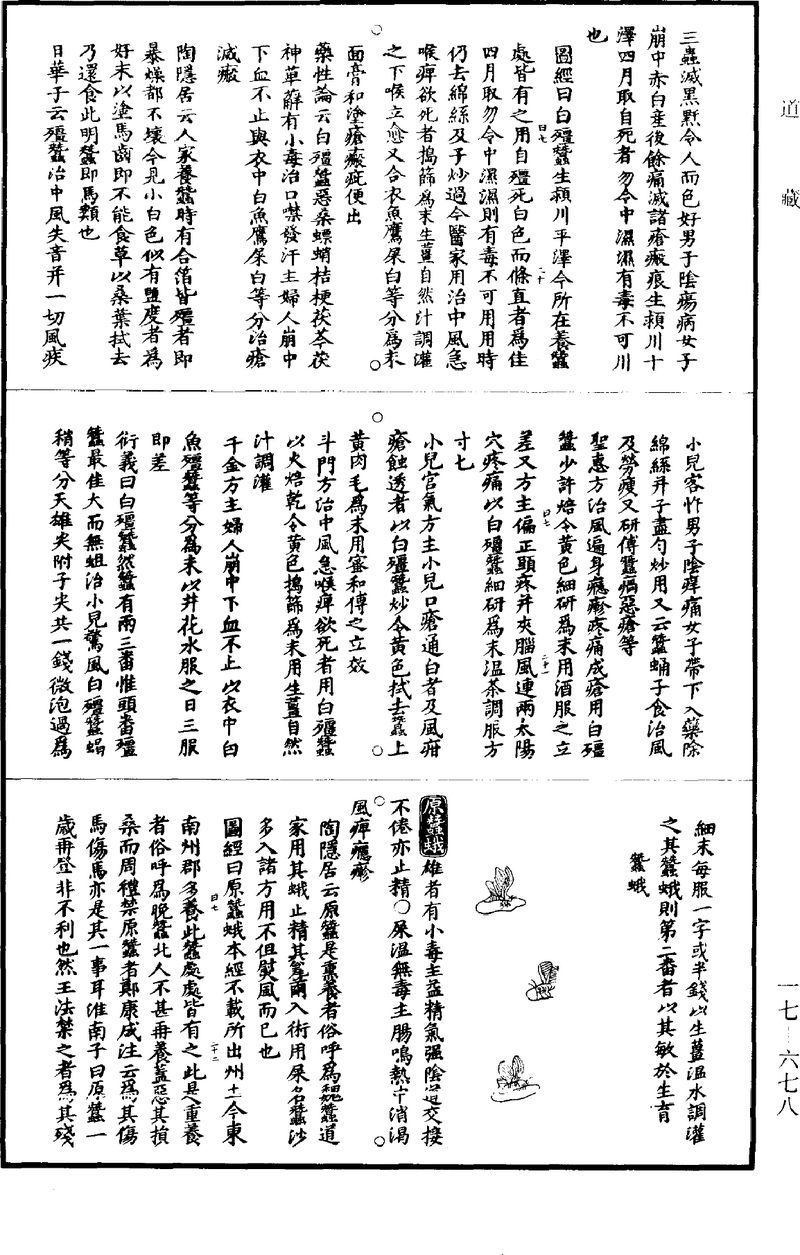 道藏
三蟲滅黑䵟令人面色好男子陰瘍病女子
崩中赤白產後餘痛滅諸瘡瘢痕生潁川十
澤四月取自死者勿令中濕濕有毒不可川
也
圖經曰白殭蠶生潁川平澤今所在養蠶
處皆有之用自殭死白色而條直者爲佳
四月取勿令中濕濕則有毒不可用用時
仍去綿絲及子炒過今醫家用治中風急
喉痹欲死者搗篩爲末生薑自然汁調灌
之下喉立愈又合衣魚鷹屎白等分爲末
面膏和塗瘡瘢疵便出
藥性論云白殭蠶惡桑螵蛸桔梗茯苓茯
神草薢有小毒治口噤發汗主婦人崩中
下血不止與衣中白魚鷹屎白等分治瘡
滅瘢
陶隱居云人家養蠶時有合箔皆殭者即
暴燥都不壞今見小白色似有鹽度者爲
好末以塗馬齒即不能食草以桑葉拭去
乃還食此明蠶即馬類也
日華子云殭蠶治中風失音并一切風疾
小兒客忤男子陰痒痛女子帶下入藥除
綿絲并子盡勻炒用又云蠶蛹子食治風
及勞瘦又研傅蠶㾦惡瘡等
聖惠方治風遍身癮疹疼痛成瘡用白殭
蠶少許焙令黃色細研爲末用酒服之立
差又方主偏正頭疼并夾腦風連兩太陽
穴疼痛以白殭蠶細研爲末温茶調服方
寸七
小兒宮氣方主小兒口瘡通白者及風疳
瘡蝕透者以白殭蠶炒令黃色拭去蠶上
黃肉毛爲末用蜜和傅之立效
斗門方治中風急喉痹欲死者用白殭蠶
以火焙乾令黃色搗篩爲末用生薑自然
汁調灌
千金方主婦人崩中下血不止以衣中白
魚殭蠶等分爲末以井花水服之日三服
即差
衍義曰白殭蠶然蠶有兩三番惟頭番殭
蠶最佳大而無蛆治小兒驚風白殭蠶蝎
稍等分天雄尖附子尖共一錢微泡過爲
細末每服一字或半錢以生薑温水調灌
之其蠶蛾則第二番者以其敏於生育
蠶蛾
原蠶蛾雄者有小毒主益精氣强陰道交接
不倦亦止精○屎温無毒主腸鳴熱中消渴
風痹癮疹
陶隱居云原蠶是重養者俗呼爲魏蠶道
家用其蛾止精其翁繭入術用屎名蠶沙
多入諸方用不但熨風而已也
圖經曰原蠶蛾本經不載所出州土今東
南州郡多養此蠶處處皆有之此是重養
者俗呼爲晚蠶北人不甚再養蓋惡其損
桑而周禮禁原蠶者鄭康成注云爲其傷
馬傷馬亦是其一事耳淮南子曰原蠶一
歲再登非不利也然王法禁之者爲其殘
一七—六七八